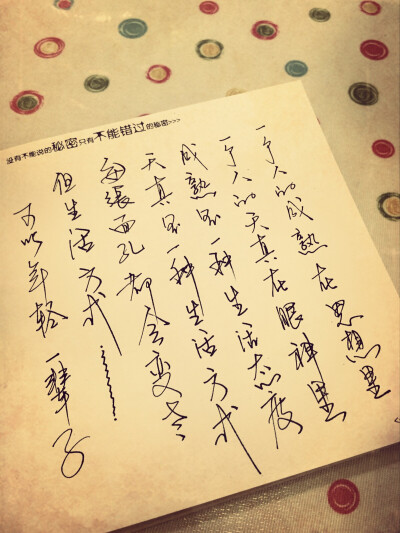 没有不能说的秘密只有不能错过的秘密>>>
一个人的成熟在思想里
一个人的天真在眼神里
成熟是一种生活态度
天真是一种生活方式
每張面孔都会变老
但生活方式………
可以年轻一辈子